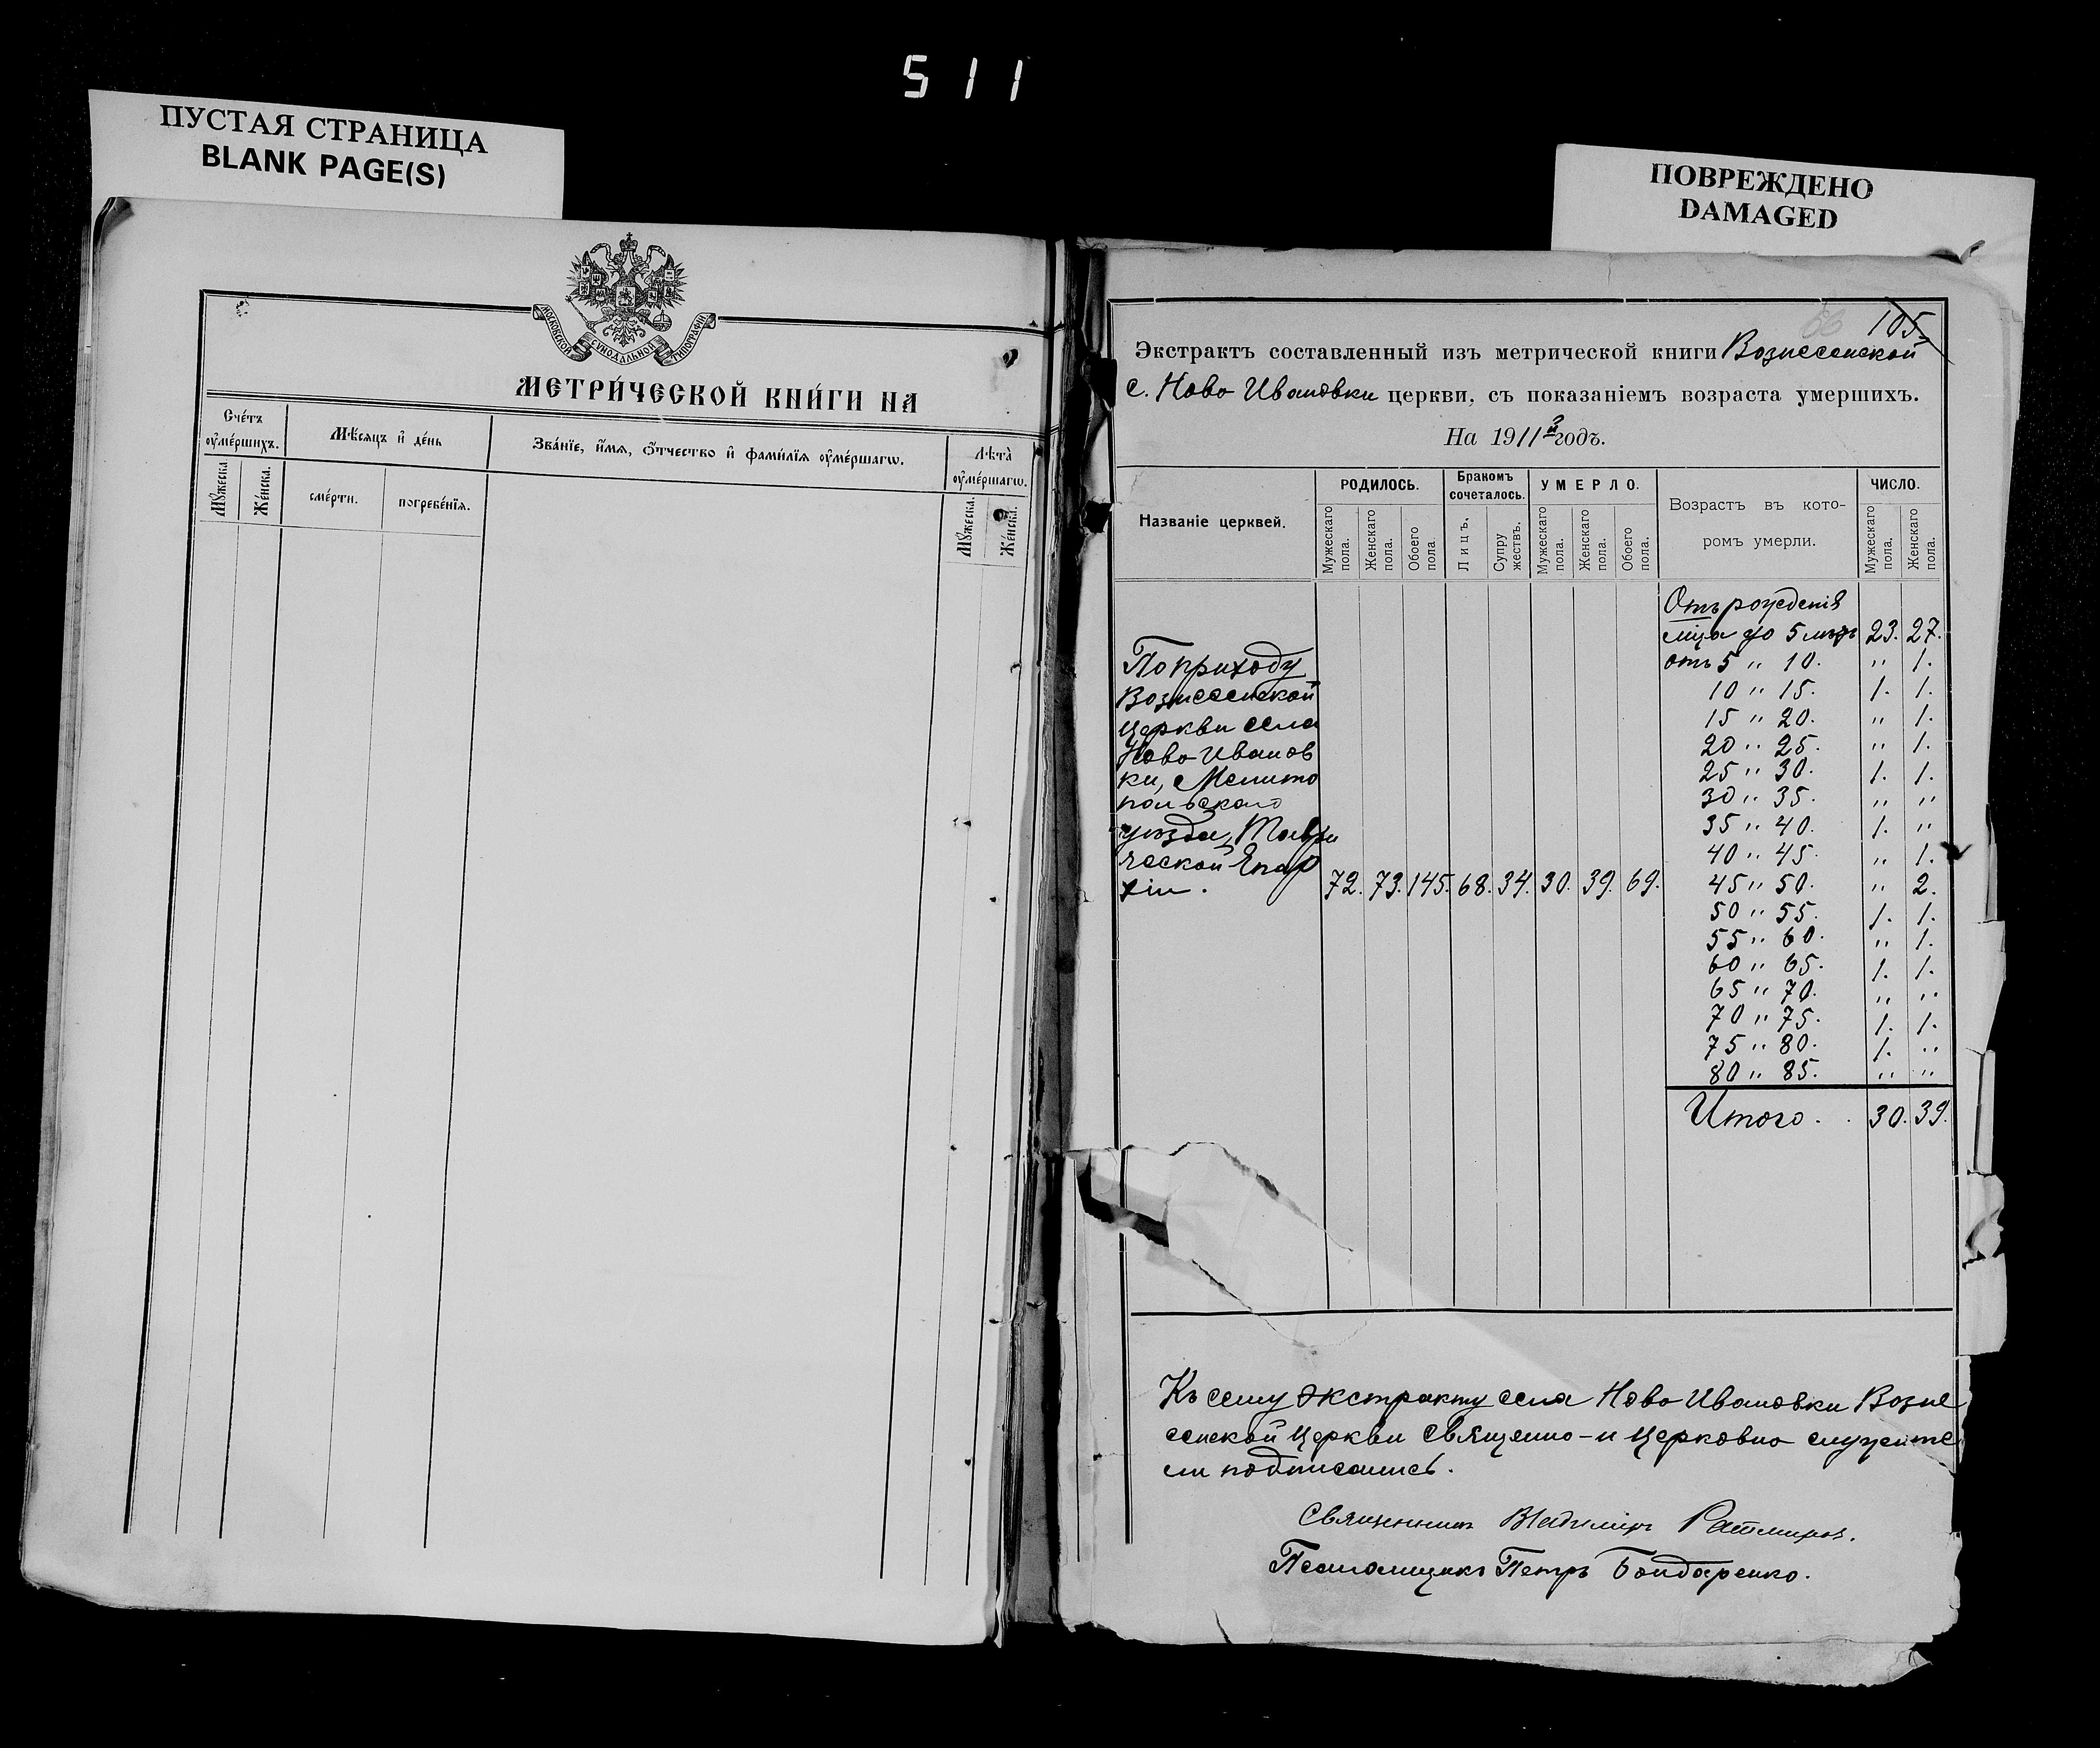 511
ПУСТАЯ СТРАНИЦА
BLANK PAGE(S)
ПОВРЕЖДЕНО
DAMAGED
МОСКОВСКОЙ СѴНОДАЛЬНОЙ ТИПОГРАФІИ
МЕТРИ́ЧЕСКОЙ КНИ́ГИ НА
Сче́тъ оу҆ме́ршихъ.
Му́жеска
Же́нска.
Мѣ́сяцъ и҆ де́нь
сме́рти.
погребе́нїѧ.
Зва́нїе, и҆́мѧ, ѻ҆́тчество и҆ фами́лїѧ оу҆ме́ршагѡ.
Лѣта̀ оу҆ме́ршагѡ.
Му́жеска.
Же́нска.
105.
Экстрактъ составленный изъ метрической книги Вознесенской
с. Ново Ивановки церкви, съ показаніемъ возраста умершихъ.
На 1911й годъ.
Названіе церквей.
РОДИЛОСЬ.
Мужескаго пола.
Женскаго пола.
Обоего пола
Бракомъ сочеталось.
Лицъ.
Супружествъ.
УМЕРЛО.
Мужескаго пола.
Женскаго пола.
Обоего пола.
Возрастъ въ которомъ умерли.
ЧИСЛО.
Мужескаго пола.
Женскаго пола.
По приходу
Вознесенской
церкви села
Ново Иванов
ки, Мелито
польскаго
уѣзда, Таври
ческой Епар
хіи. 72. 73. 145. 68. 34. 30. 39. 69.
Отъ рожденія
мца до 5 лѣтъ 23. 27.
отъ 5 " 10. " 1.
10 " 15. 1. 1.
15 " 20. " 1.
20 " 25. " 1.
25 " 30. 1. 1.
30 " 35. " "
35 " 40. 1. "
40 " 45. " 1.
45 " 50. " 2.
50 " 55. 1. 1.
55 " 60. " 1.
60 " 65. 1. 1.
65 " 70. " "
70 " 75. 1. 1.
75 " 80. 1. "
80 " 85. " "
Итого. . 30. 39.
Къ сему экстракту села Ново Ивановки Возне
сенской Церкви Священно-и Церковно служите
ли подписались.
Священникъ Владиміръ Ратмиров.
Псаломщикъ Петръ Бондаренко.